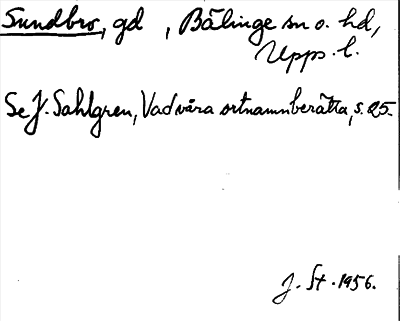 Sundbro, gd , Bälinge sn o. hd,
Upps. l.
Se J. Sahlgren, Vad våra ortnamn berätta, s. 25.
J. St. 1956.